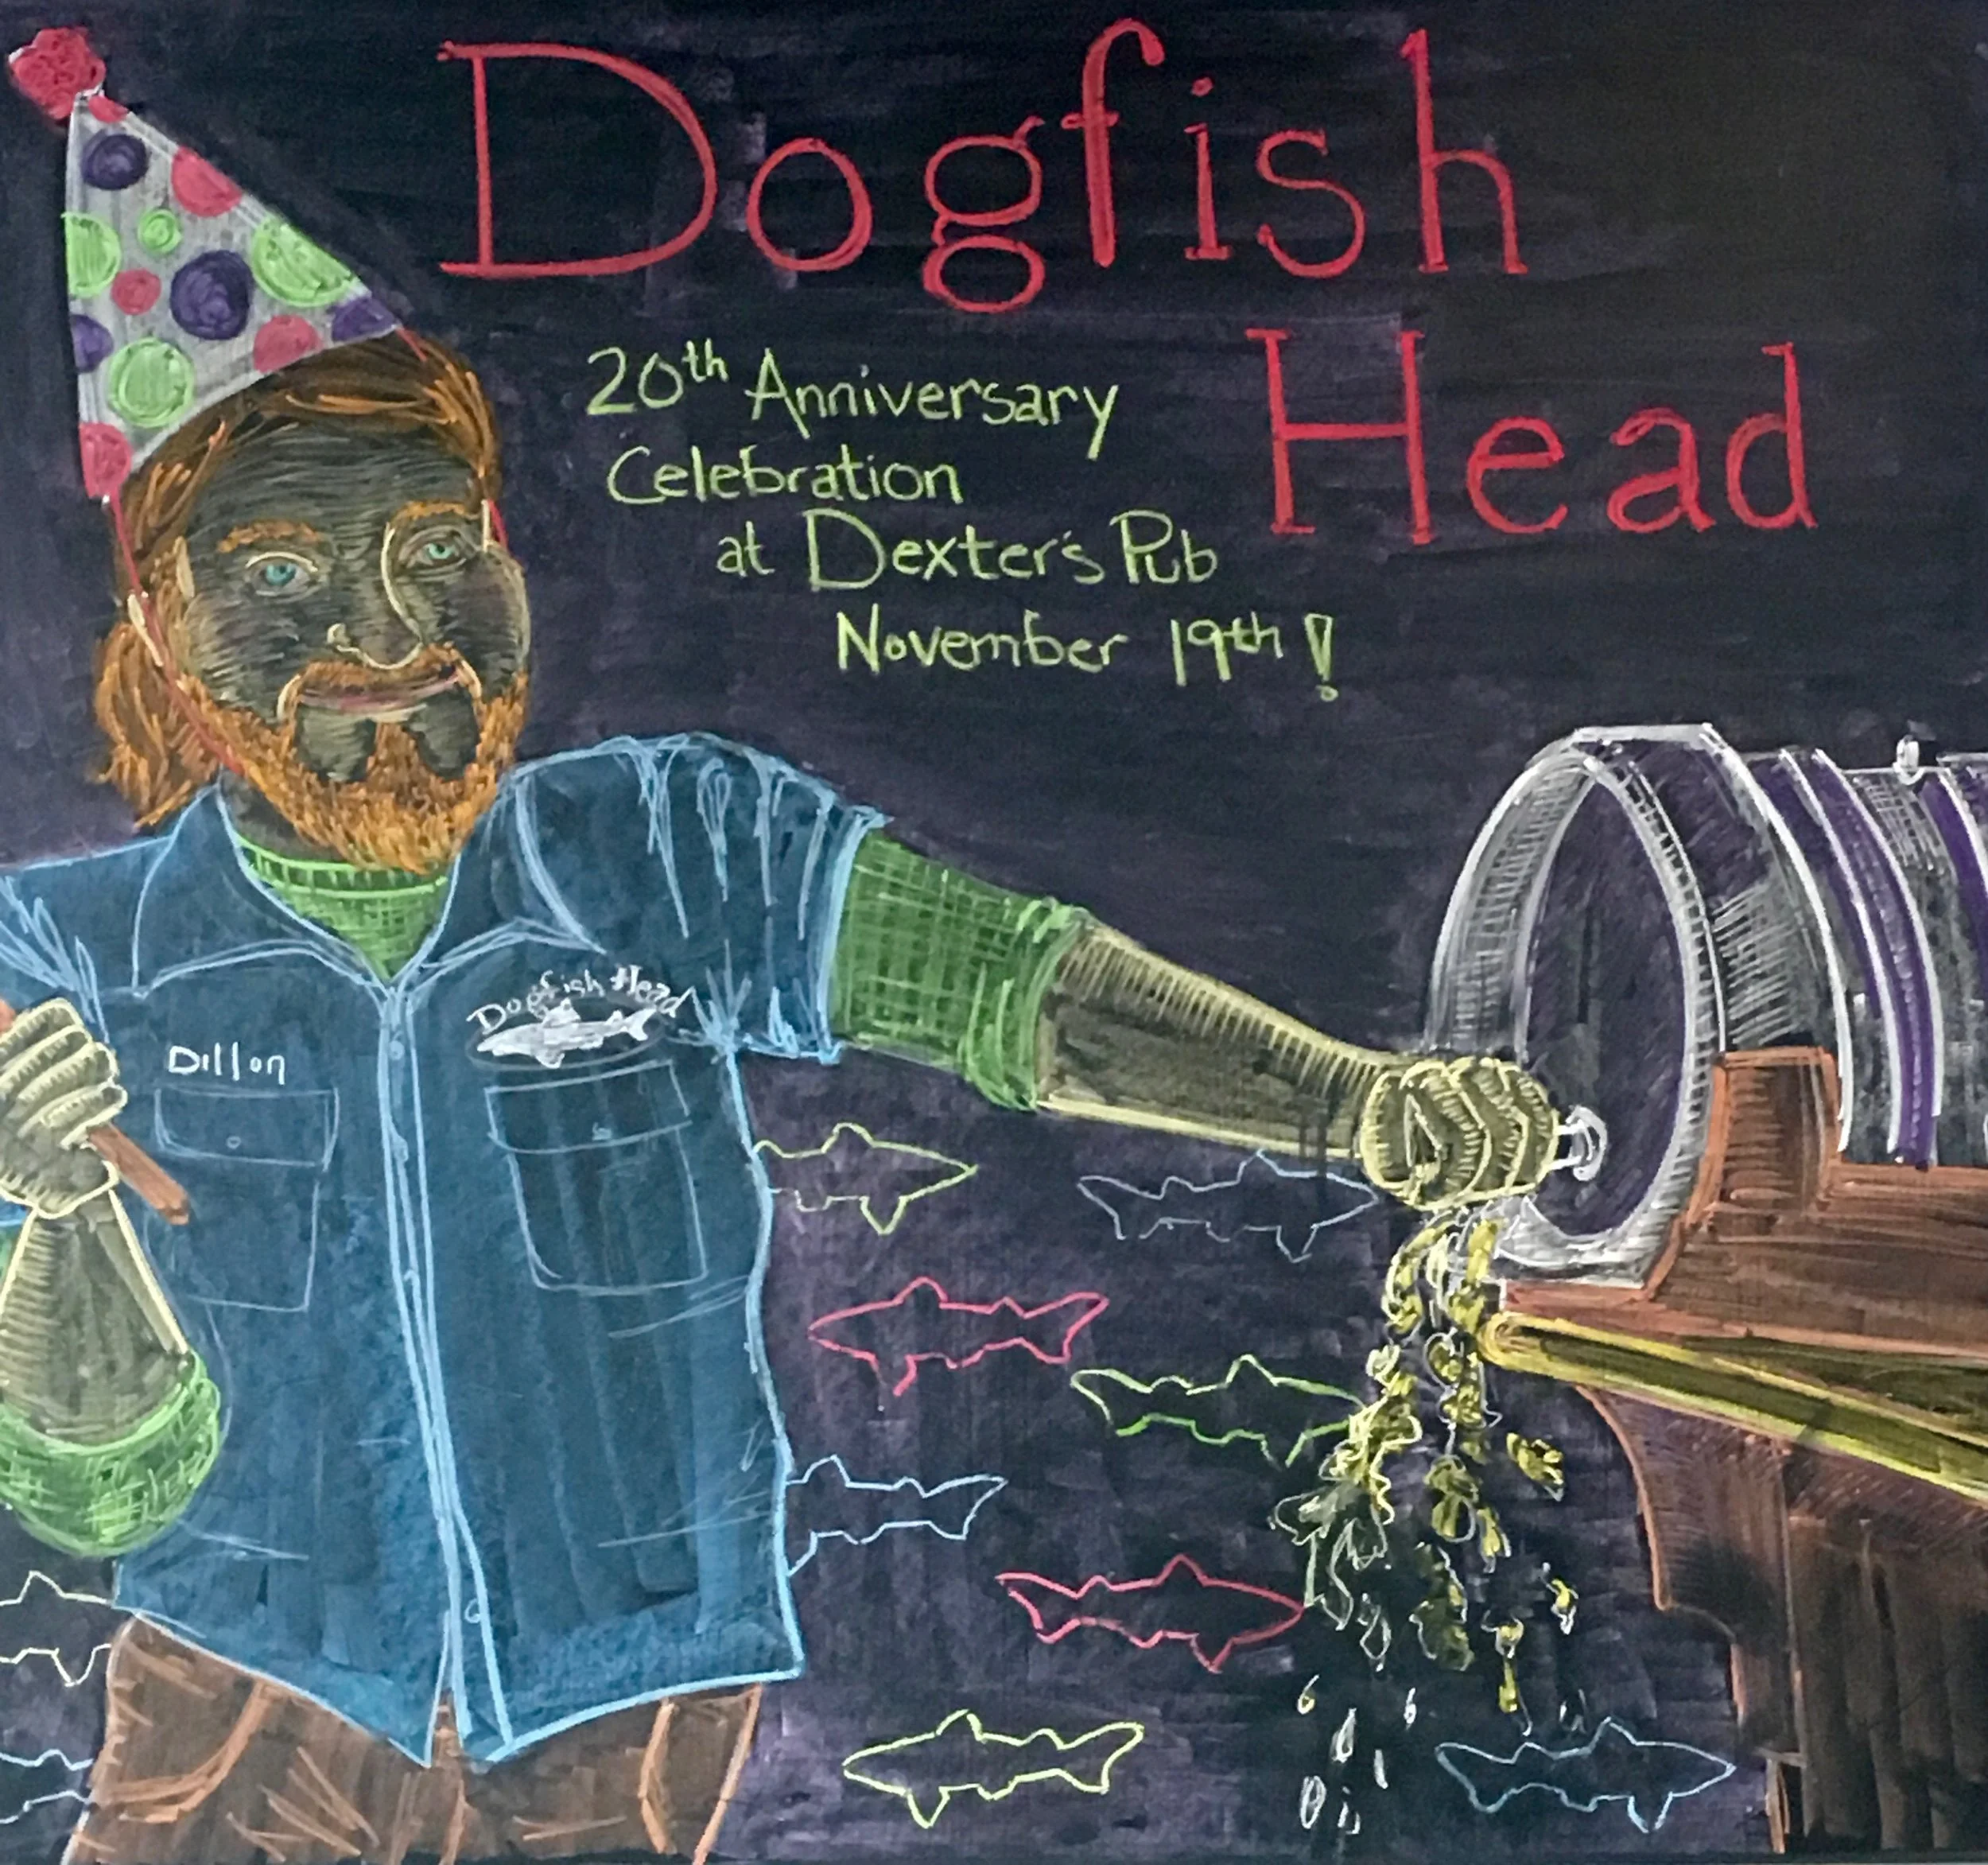 Dogfish
Head
20th Anniversary
Celebration
at Dexter's Pub
November 19th!
Dogfish Head
Dillon